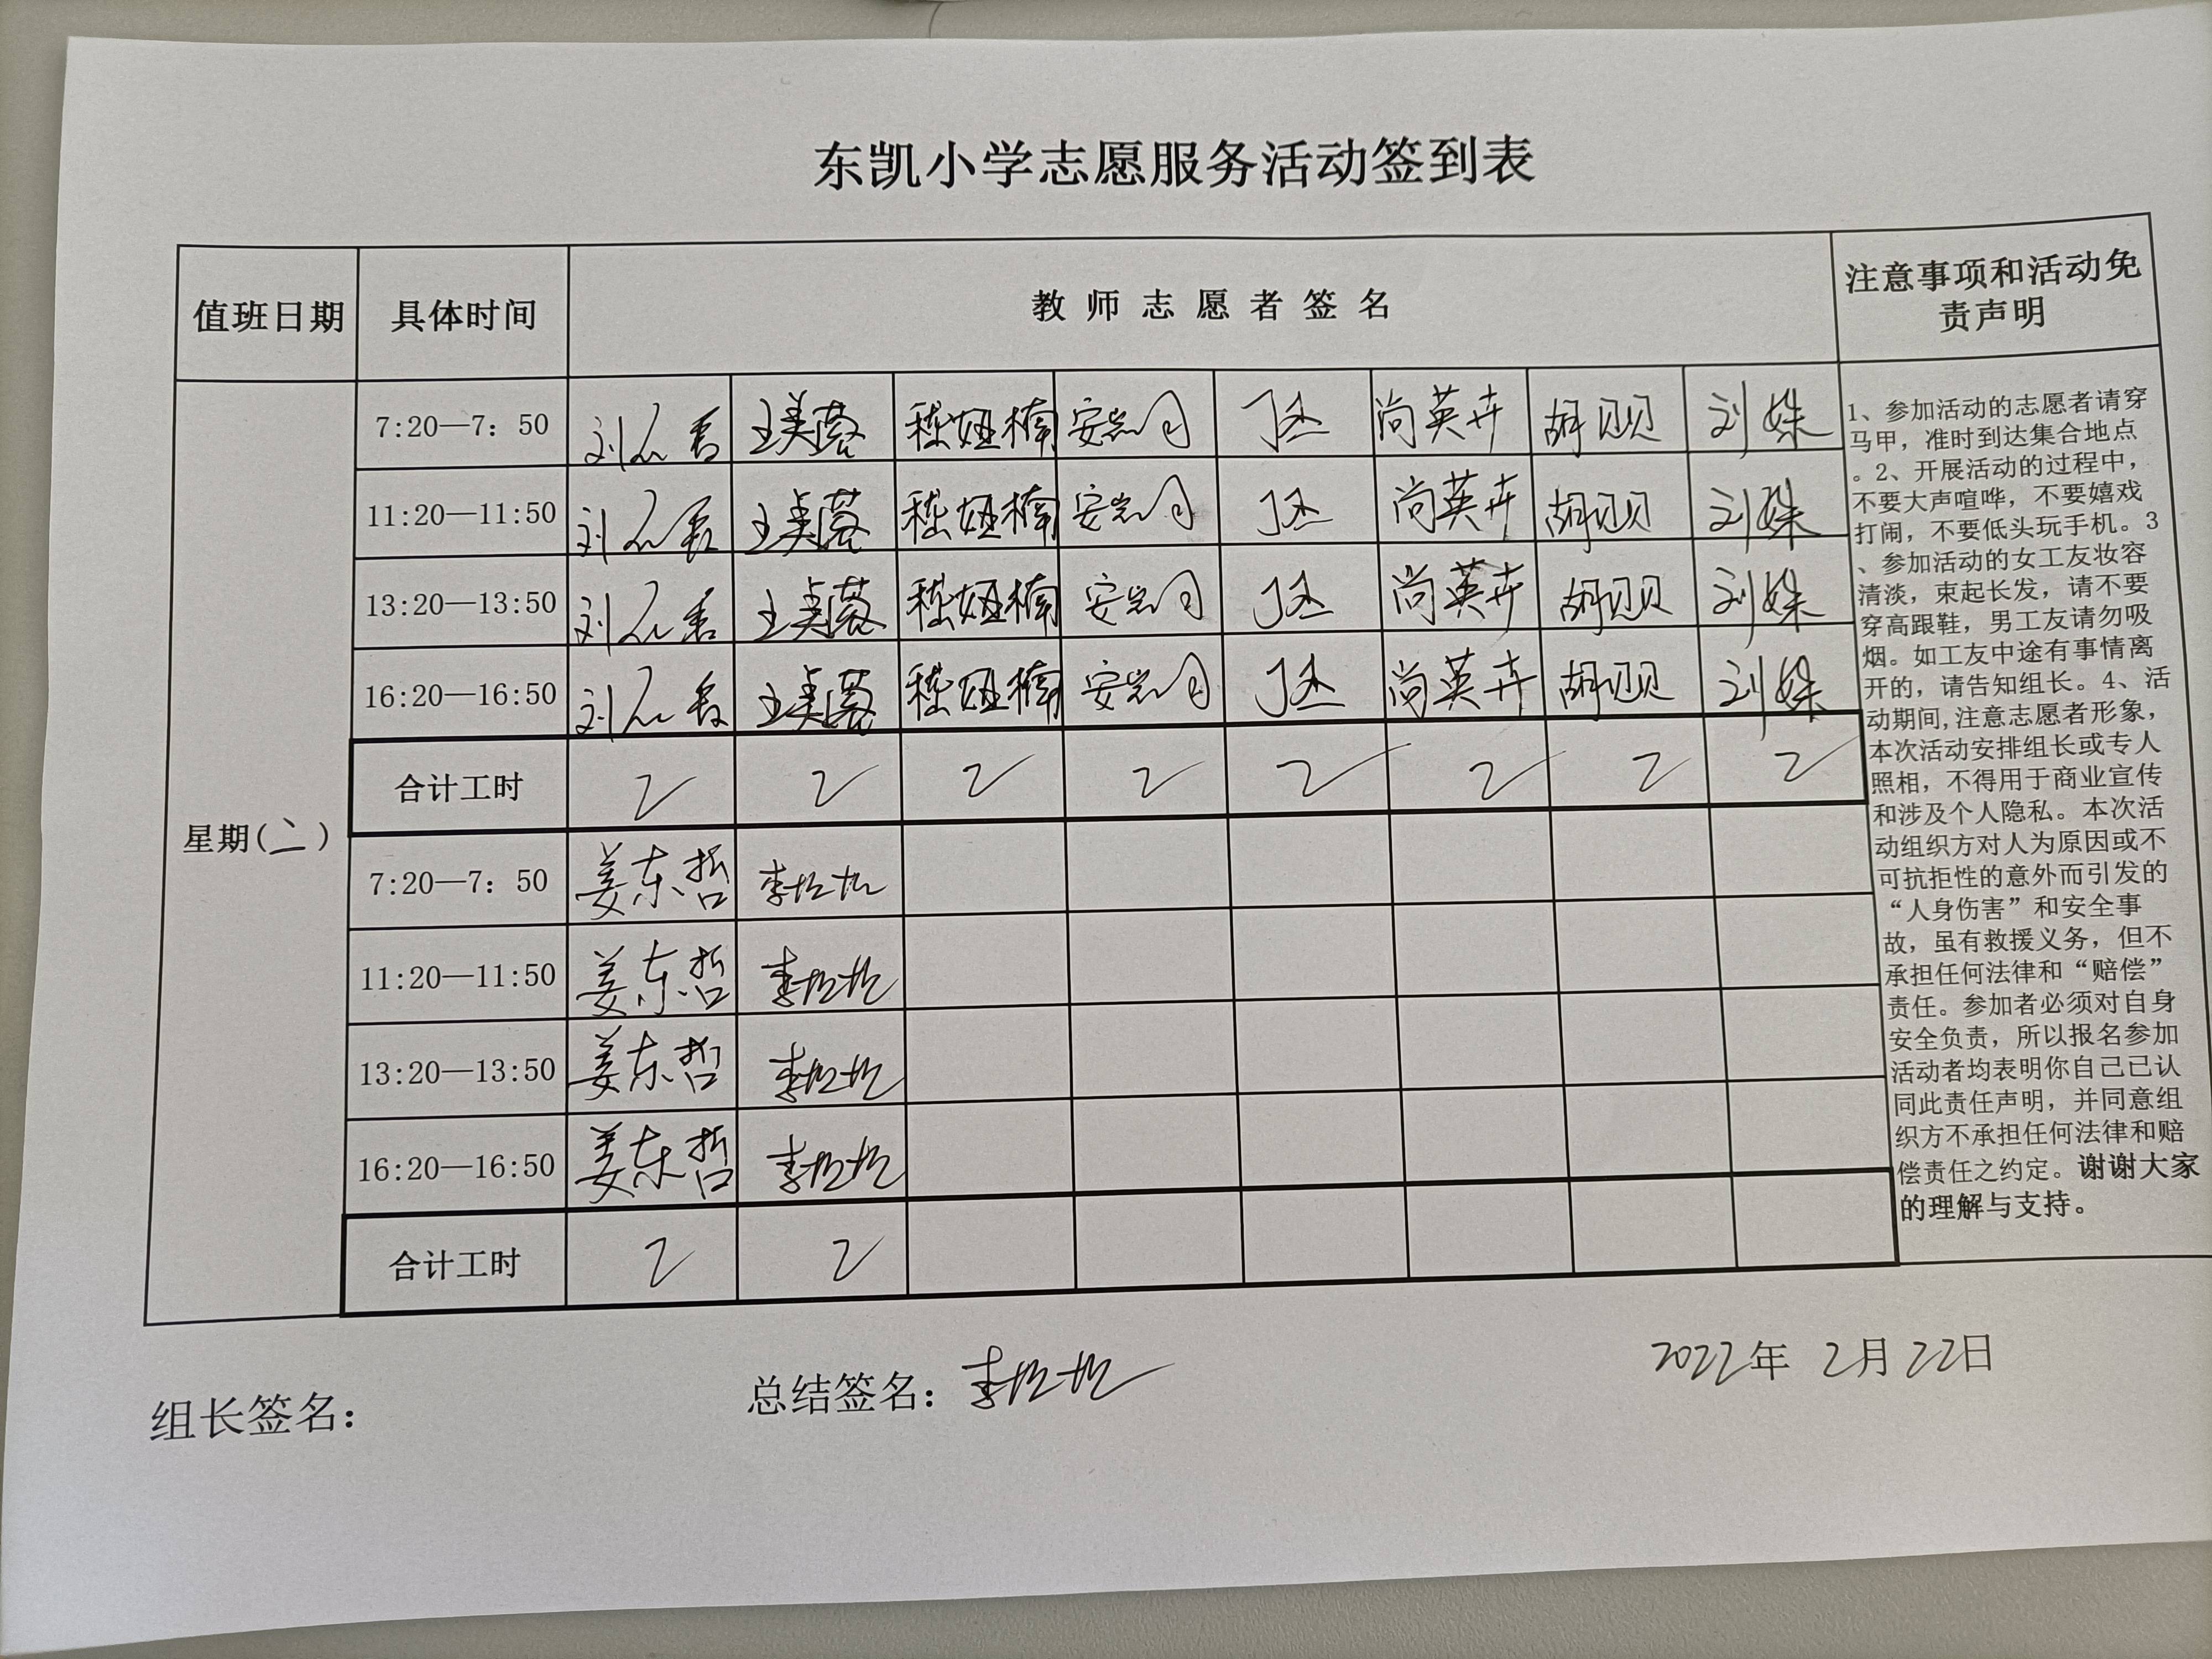 东凯小学志愿服务活动签到表
值班日期 具体时间 教师志愿者签名 注意事项和活动免
责声明
7:20—7：50 王美蓉 嵇妞楠 丁丞 尚英卉 胡贝贝 刘姝
11:20—11:50 王美蓉 嵇妞楠 丁丞 尚英卉 胡贝贝 刘姝
13:20—13:50 王美蓉 嵇妞楠 丁丞 尚英卉 胡贝贝 刘姝
16:20—16:50 王美蓉 嵇妞楠 丁丞 尚英卉 胡贝贝 刘姝
合计工时 2 2 2 2 2 2 2 2
星期(二)
7:20—7：50 姜东哲
11:20—11:50 姜东哲
13:20—13:50 姜东哲
16:20—16:50 姜东哲
合计工时 2 2
1、参加活动的志愿者请穿
马甲，准时到达集合地点
。2、开展活动的过程中，
不要大声喧哗，不要嬉戏
打闹，不要低头玩手机。3
、参加活动的女工友妆容
清淡，束起长发，请不要
穿高跟鞋，男工友请勿吸
烟。如工友中途有事情离
开的，请告知组长。4、活
动期间,注意志愿者形象，
本次活动安排组长或专人
照相，不得用于商业宣传
和涉及个人隐私。本次活
动组织方对人为原因或不
可抗拒性的意外而引发的
“人身伤害”和安全事
故，虽有救援义务，但不
承担任何法律和“赔偿”
责任。参加者必须对自身
安全负责，所以报名参加
活动者均表明你自己已认
同此责任声明，并同意组
织方不承担任何法律和赔
偿责任之约定。谢谢大家
的理解与支持。
组长签名： 总结签名： 2022年 2月 22日